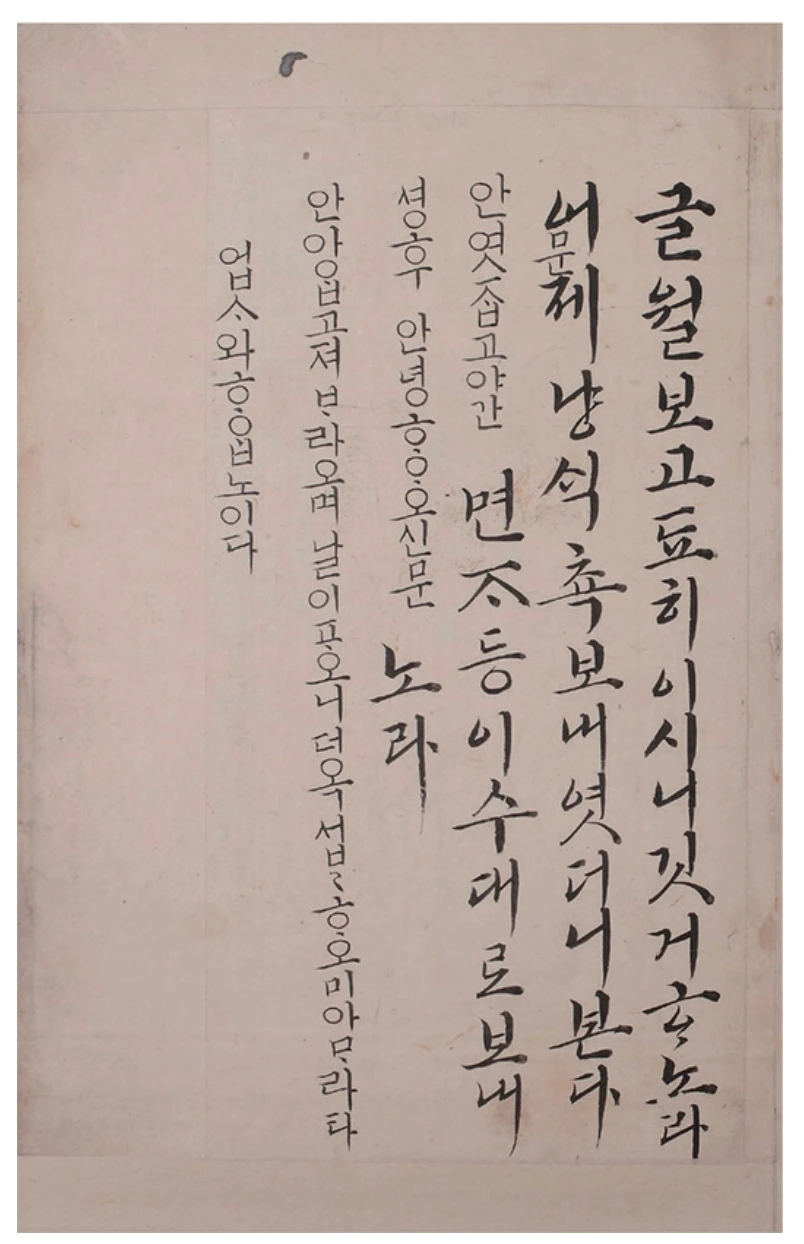 글월 보고 됴히 이시니 깃거ᄒᆞ노라
어제 냥 ᄉᆡᆨ 쵹 보내엿더니 본다
면ᄌᆞ등 이 수대로 보내
노라
문
안 엿ᄌᆞᆸ고 야간
셩후 안녕ᄒᆞᄋᆞ오신 문
안 아ᄋᆞᆸ고져 ᄇᆞ라오며 날이 오니 더옥 섭〻 ᄒᆞᄋᆞ오미 아ᄆᆞ라타
업ᄉᆞ와 ᄒᆞᄋᆞᆸ노이다